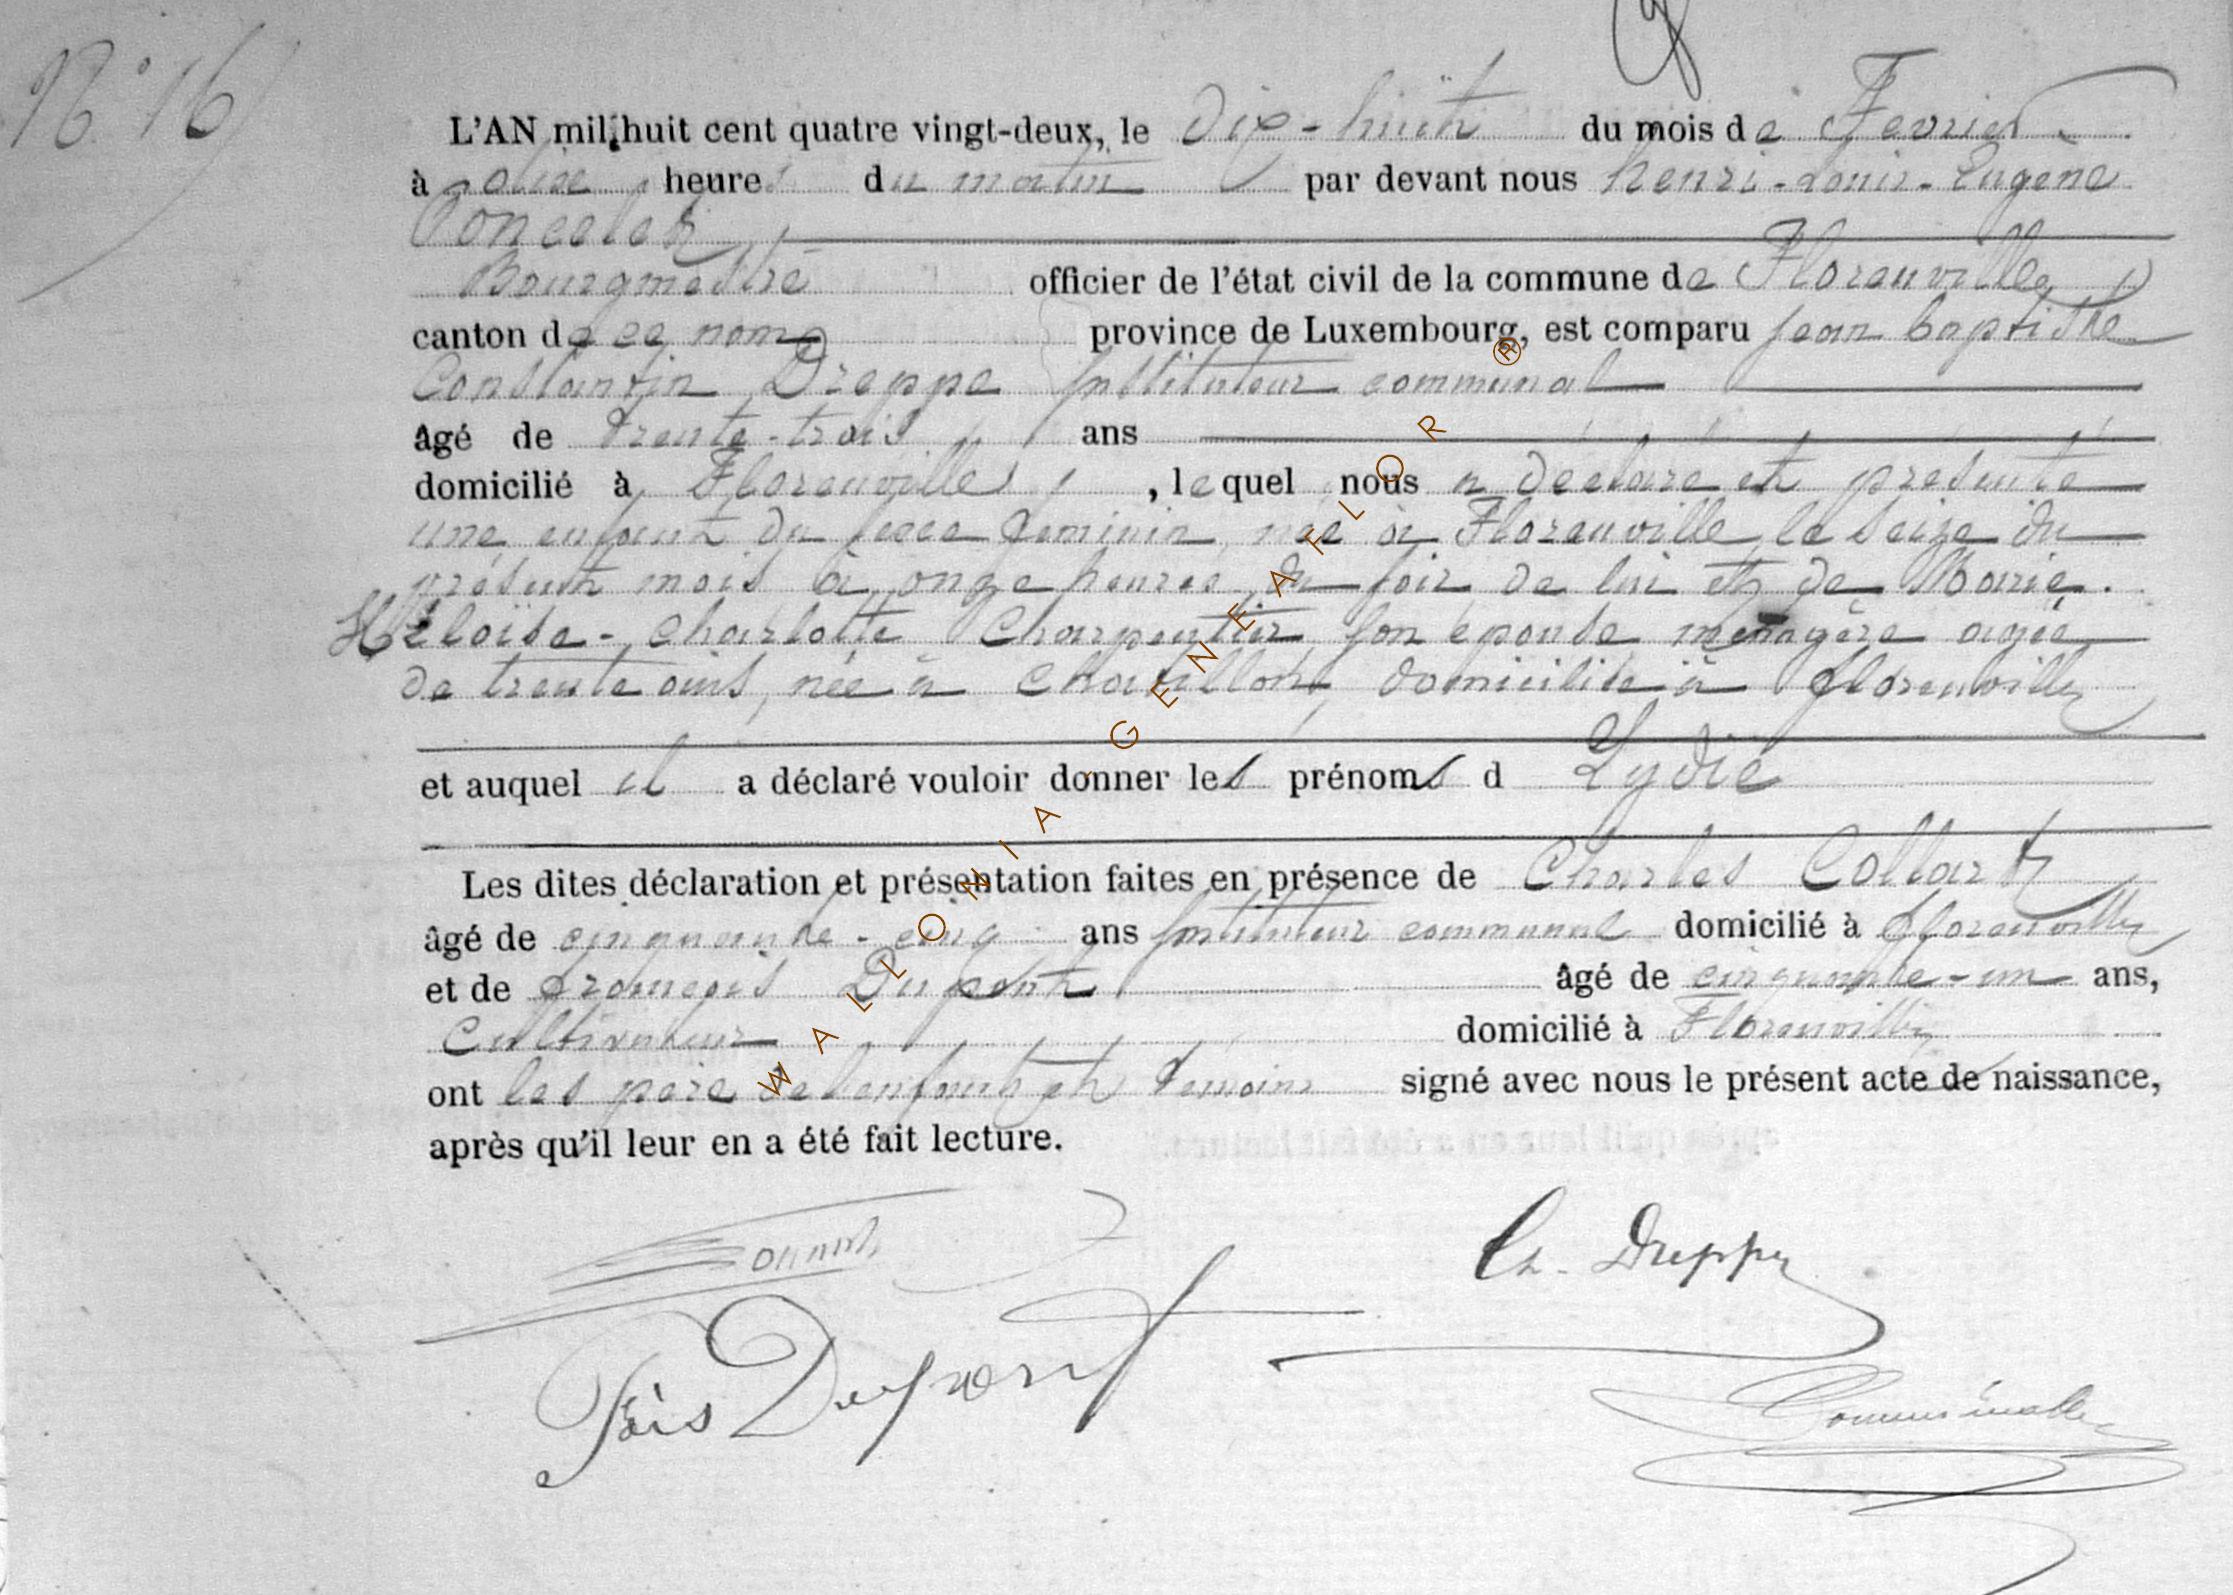 N° 16
L'AN mil huit cent quatre vingt-deux, le Dix-huit du mois de Fevrier
à onze heures du matin par devant nous henri-Louis-Eugène
Poncelet
Bourgmestre officier de l'état civil de la commune de Florenville
canton de ce nom province de Luxembourg, est comparu jean baptiste
Constantin Dreppe Instituteur communal
âgé de trente-trois ans
domicilié à Florenville, lequel nous a déclaré et présenté
une enfant du sexe feminin, née à Florenville, le seize du
présent mois à onze heures du soir de lui et de Marie.
Héloïse-Charlotte Charpentier son épouse ménagère agée
de trente ans, née à Chatillon, domiciliée à florenville
et auquel il a déclaré vouloir donner les prénoms d Lydie
Les dites déclaration et présentation faites en présence de Charles Collart
âgé de cinquante-cinq ans Instituteur communal domicilié à florenville
et de françois Dupont âgé de cinquante-un ans,
Cultivateur domicilié à Florenville
ont les père de l'enfant et temoins signé avec nous le présent acte de naissance,
après qu'il leur en a été fait lecture.
Ch. Dreppe
Fçois Dupont
WALLONIA-GENEAFLOR®